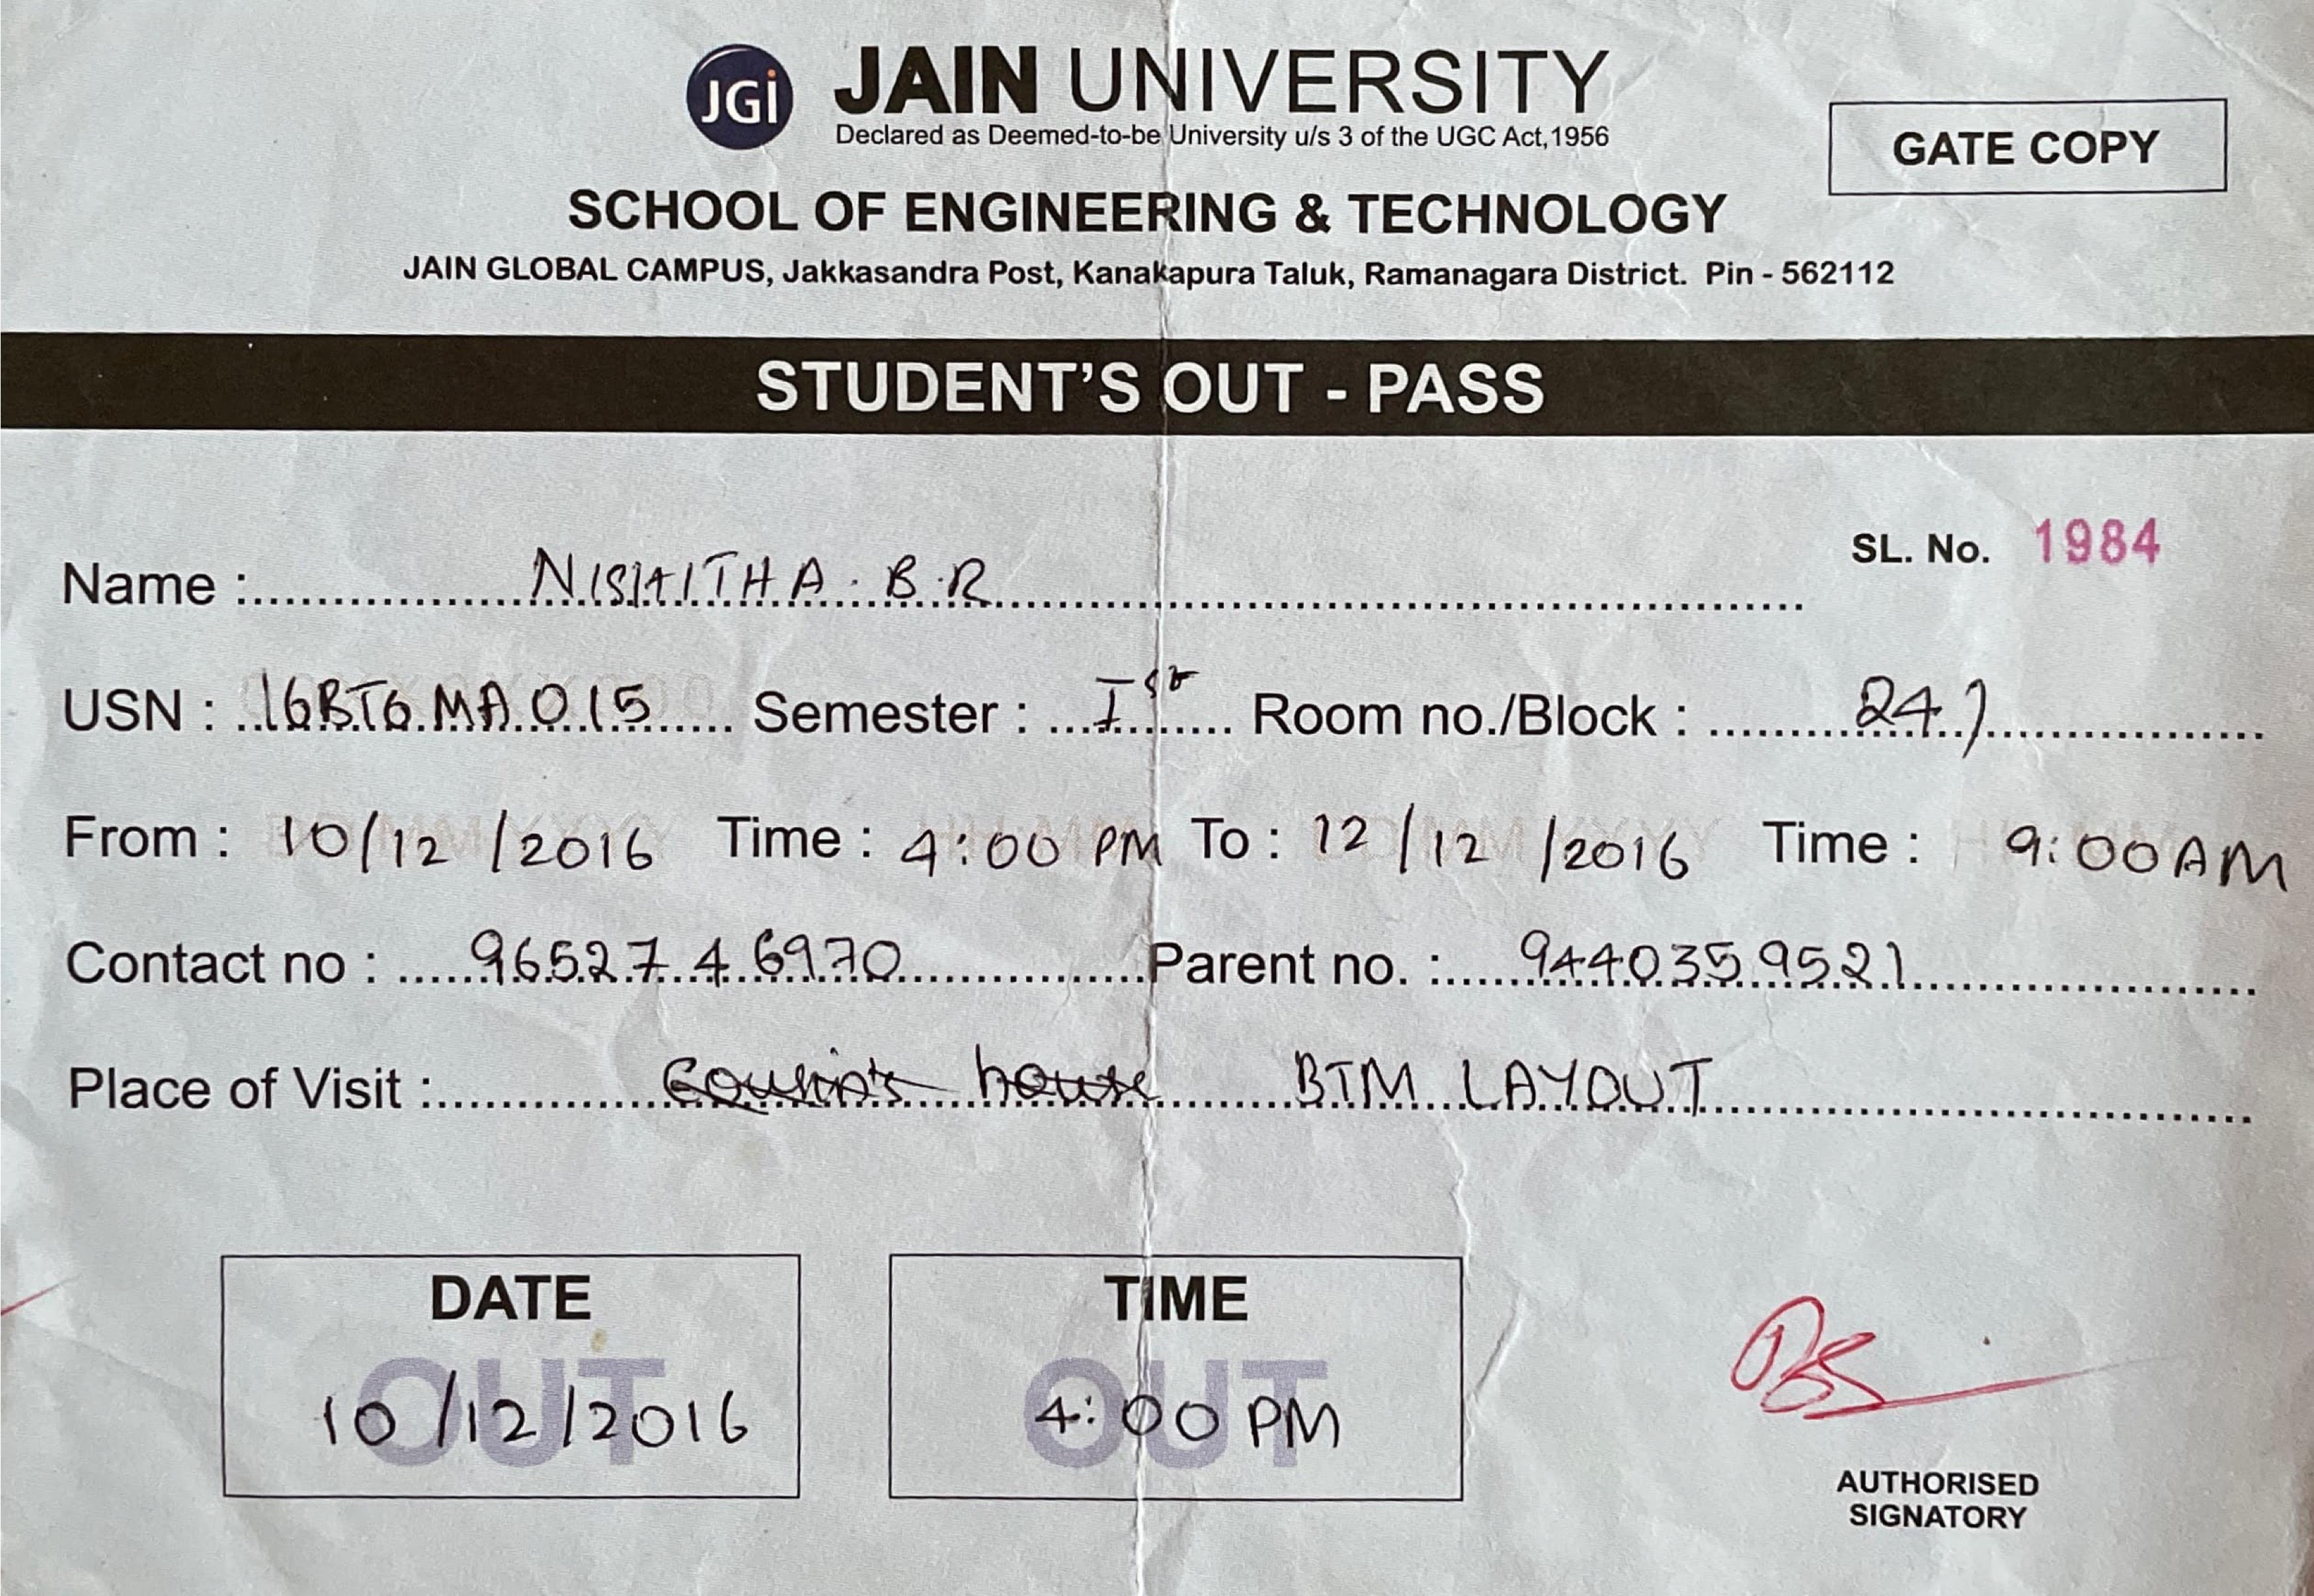 JGi JAIN UNIVERSITY
Declared as Deemed-to-be University u/s 3 of the UGC Act,1956
GATE COPY
SCHOOL OF ENGINEERING & TECHNOLOGY
JAIN GLOBAL CAMPUS, Jakkasandra Post, Kanakapura Taluk, Ramanagara District. Pin - 562112
STUDENT'S OUT - PASS
SL. No. 1984
Name : NISHITHA. B.R
USN : 16BTGMA015 Semester : Ist Room no./Block : 247
From : 10/12/2016 Time : 4:00 PM To : 12/12/2016 Time : 9:00 AM
Contact no : 9652746970 Parent no. : 9440359521
Place of Visit : Cousin's house BTM LAYOUT
DATE TIME
OUT OUT
10/12/2016 4:00 PM
AUTHORISED
SIGNATORY